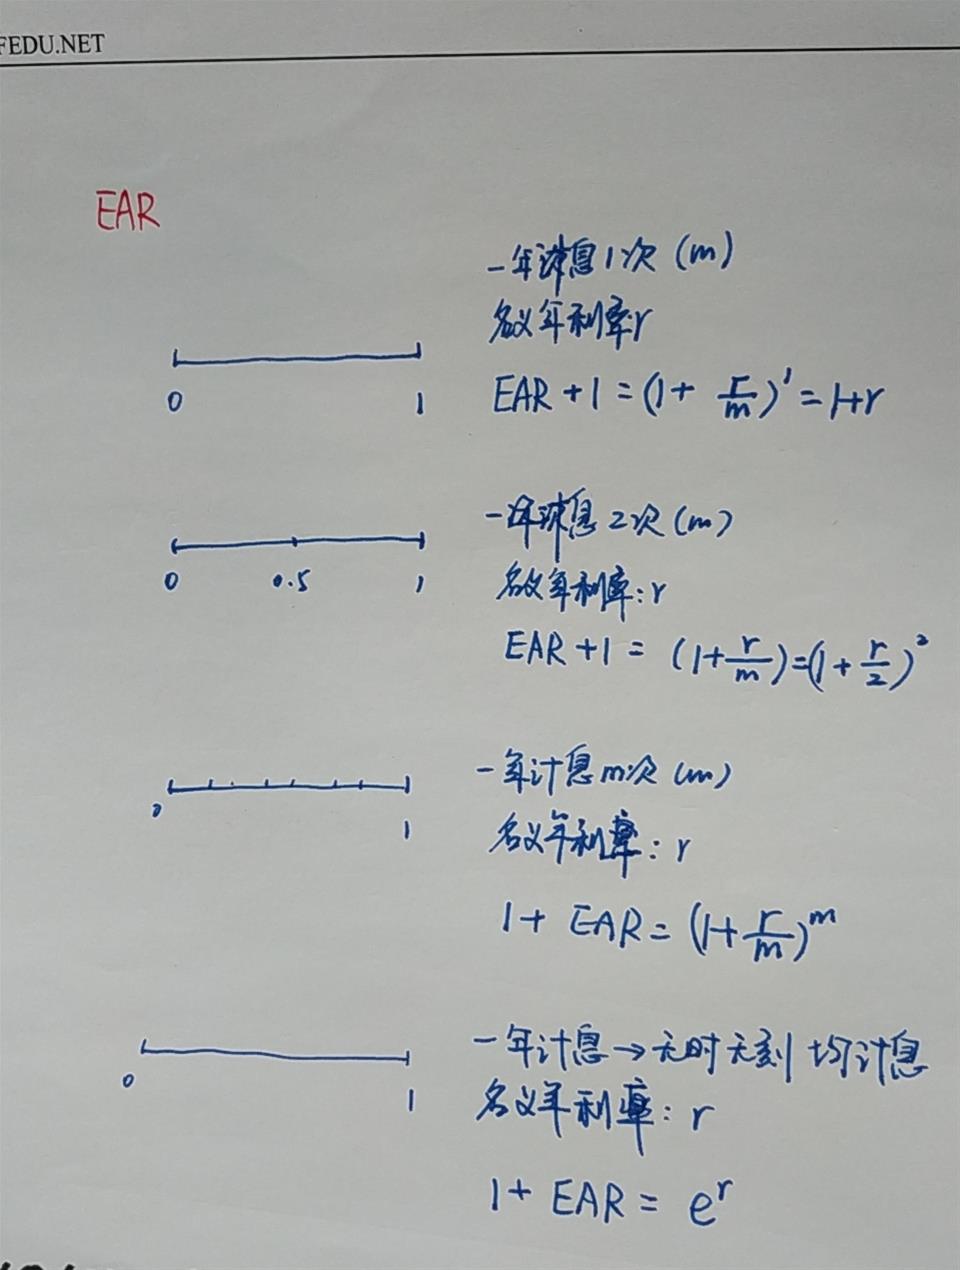 FEDU.NET
EAR
一年计息1次 (m)
名义年利率r
EAR + 1 = (1 + r/m)^1 = 1+r
0 1
一年计息2次 (m)
名义年利率: r
EAR + 1 = (1 + r/m) = (1 + r/2)^2
0 0.5 1
一年计息m次 (m)
名义年利率: r
1 + EAR = (1 + r/m)^m
0 1
一年计息 → 无时无刻均计息
名义年利率: r
1 + EAR = e^r
0 1